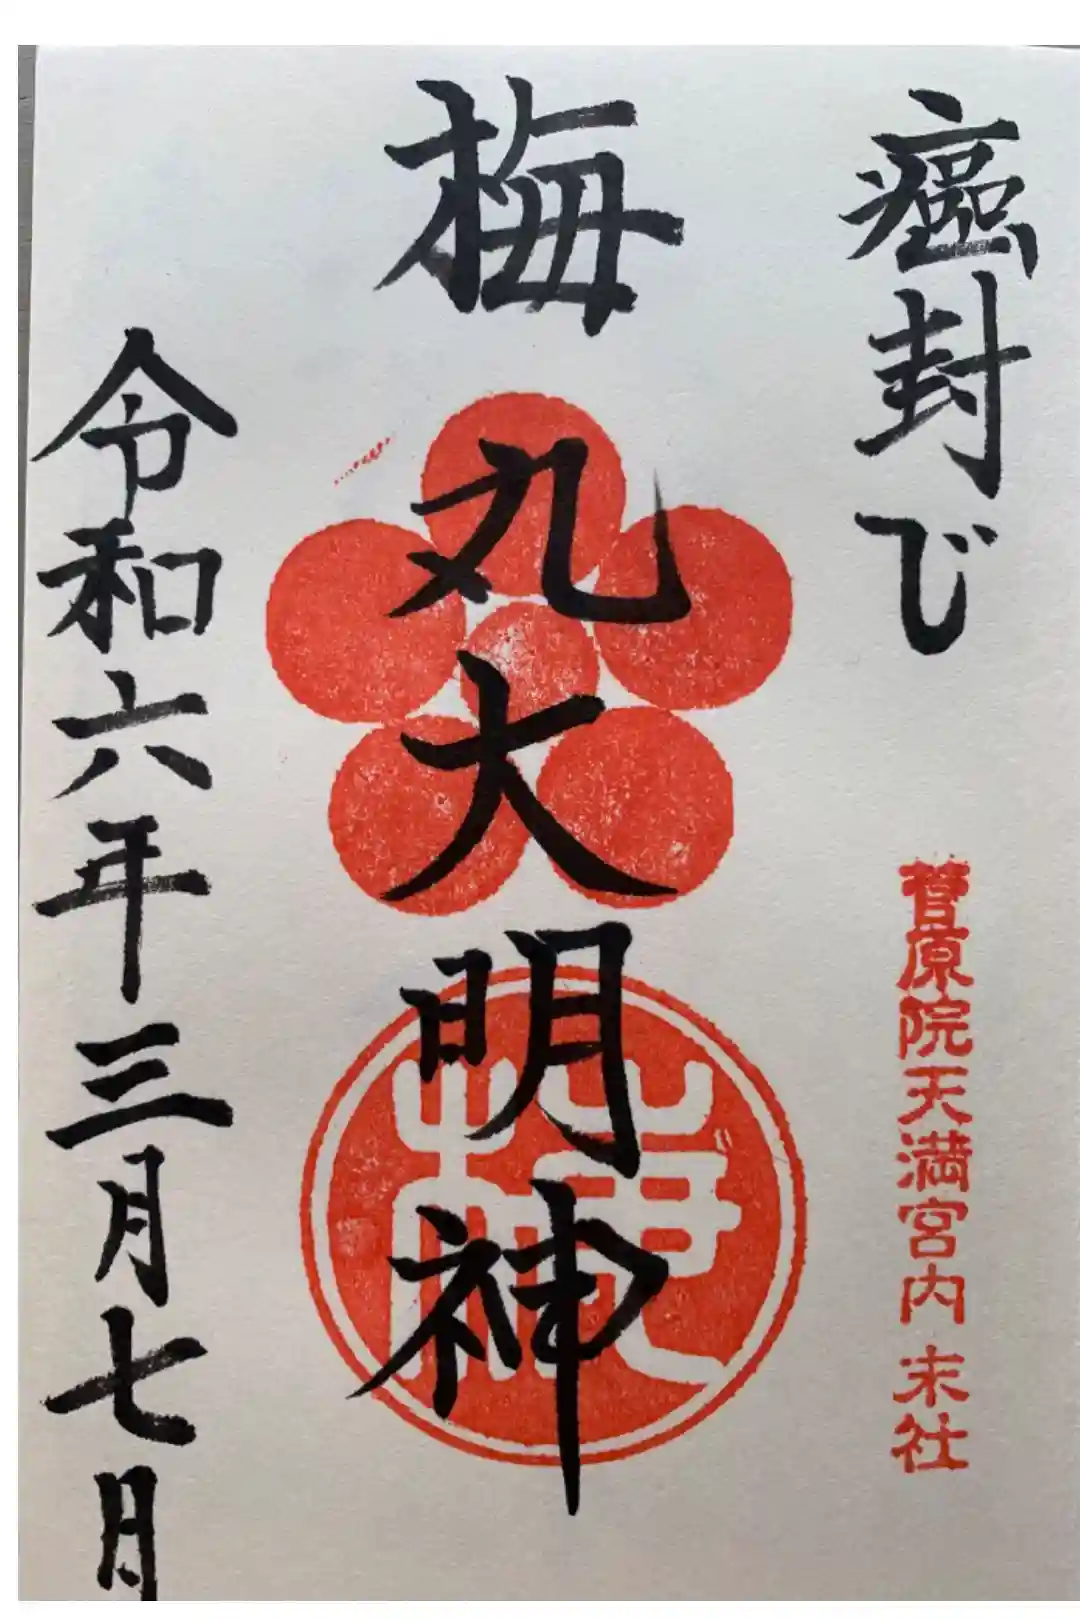 癌封び
菅原院天満宮内末社
梅丸大明神
令和六年三月七日